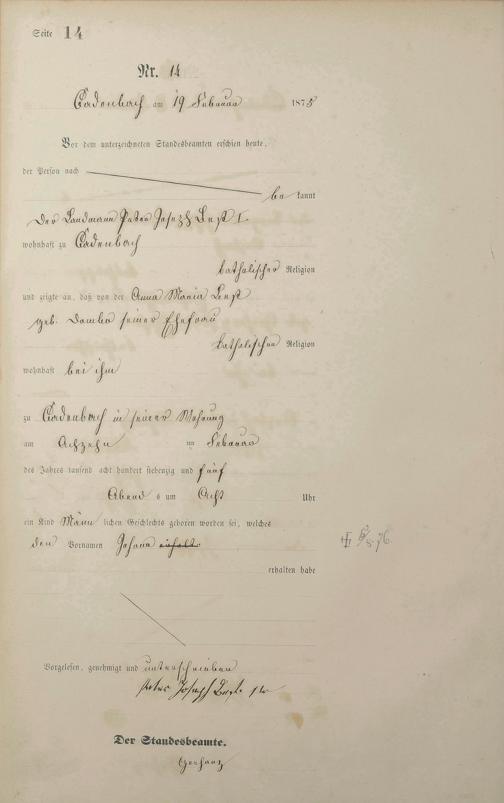 Seite 14
Nr. 14
Cadenbach am 19 Februar 1875
Vor dem unterzeichneten Standesbeamten erschien heute,
der Person nach
be kannt
Der Landmann Peter Joseph
wohnhaft zu Cadenbach
katholischer Religion
und zeigte an, daß von der Anna Maria
geb. seiner Ehefrau
katholischer Religion
wohnhaft bei ihm
zu Cadenbach in seiner Wohnung
am Achzehn im Februar
des Jahres tausend acht hundert siebenzig und fünf
Abend s um Acht Uhr
ein Kind Männ lichen Geschlechts geboren worden sei, welches
den Vornamen Johann erhalte
erhalten habe
Vorgelesen, genehmigt und unterschrieben
Peter Joseph
Der Standesbeamte.